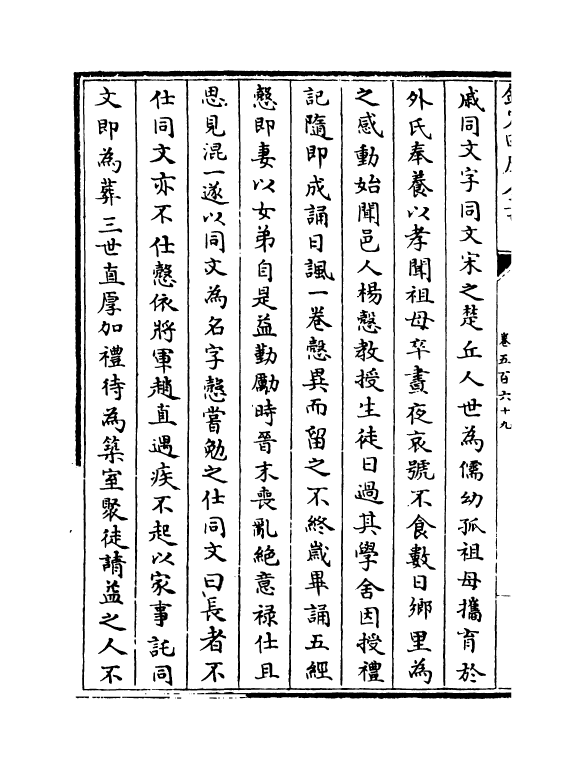 卷五百六十九
戚同文字同文宋之楚丘人世為儒幼孤祖母攜育於
外氏奉養以孝聞祖母卒晝夜哀號不食數日鄉里為
之感動始聞邑人楊慤教授生徒日過其學舍因授禮
記隨即成誦日諷一卷慤異而留之不終歲畢誦五經
慤即妻以女弟自是益勤勵時晉末喪亂絕意祿仕且
思見混一遂以同文為名字慤嘗勉之仕同文曰長者不
仕同文亦不仕慤依將軍趙直遇疾不起以家事託同
文即為葬三世直厚加禮待為築室聚徒請益之人不